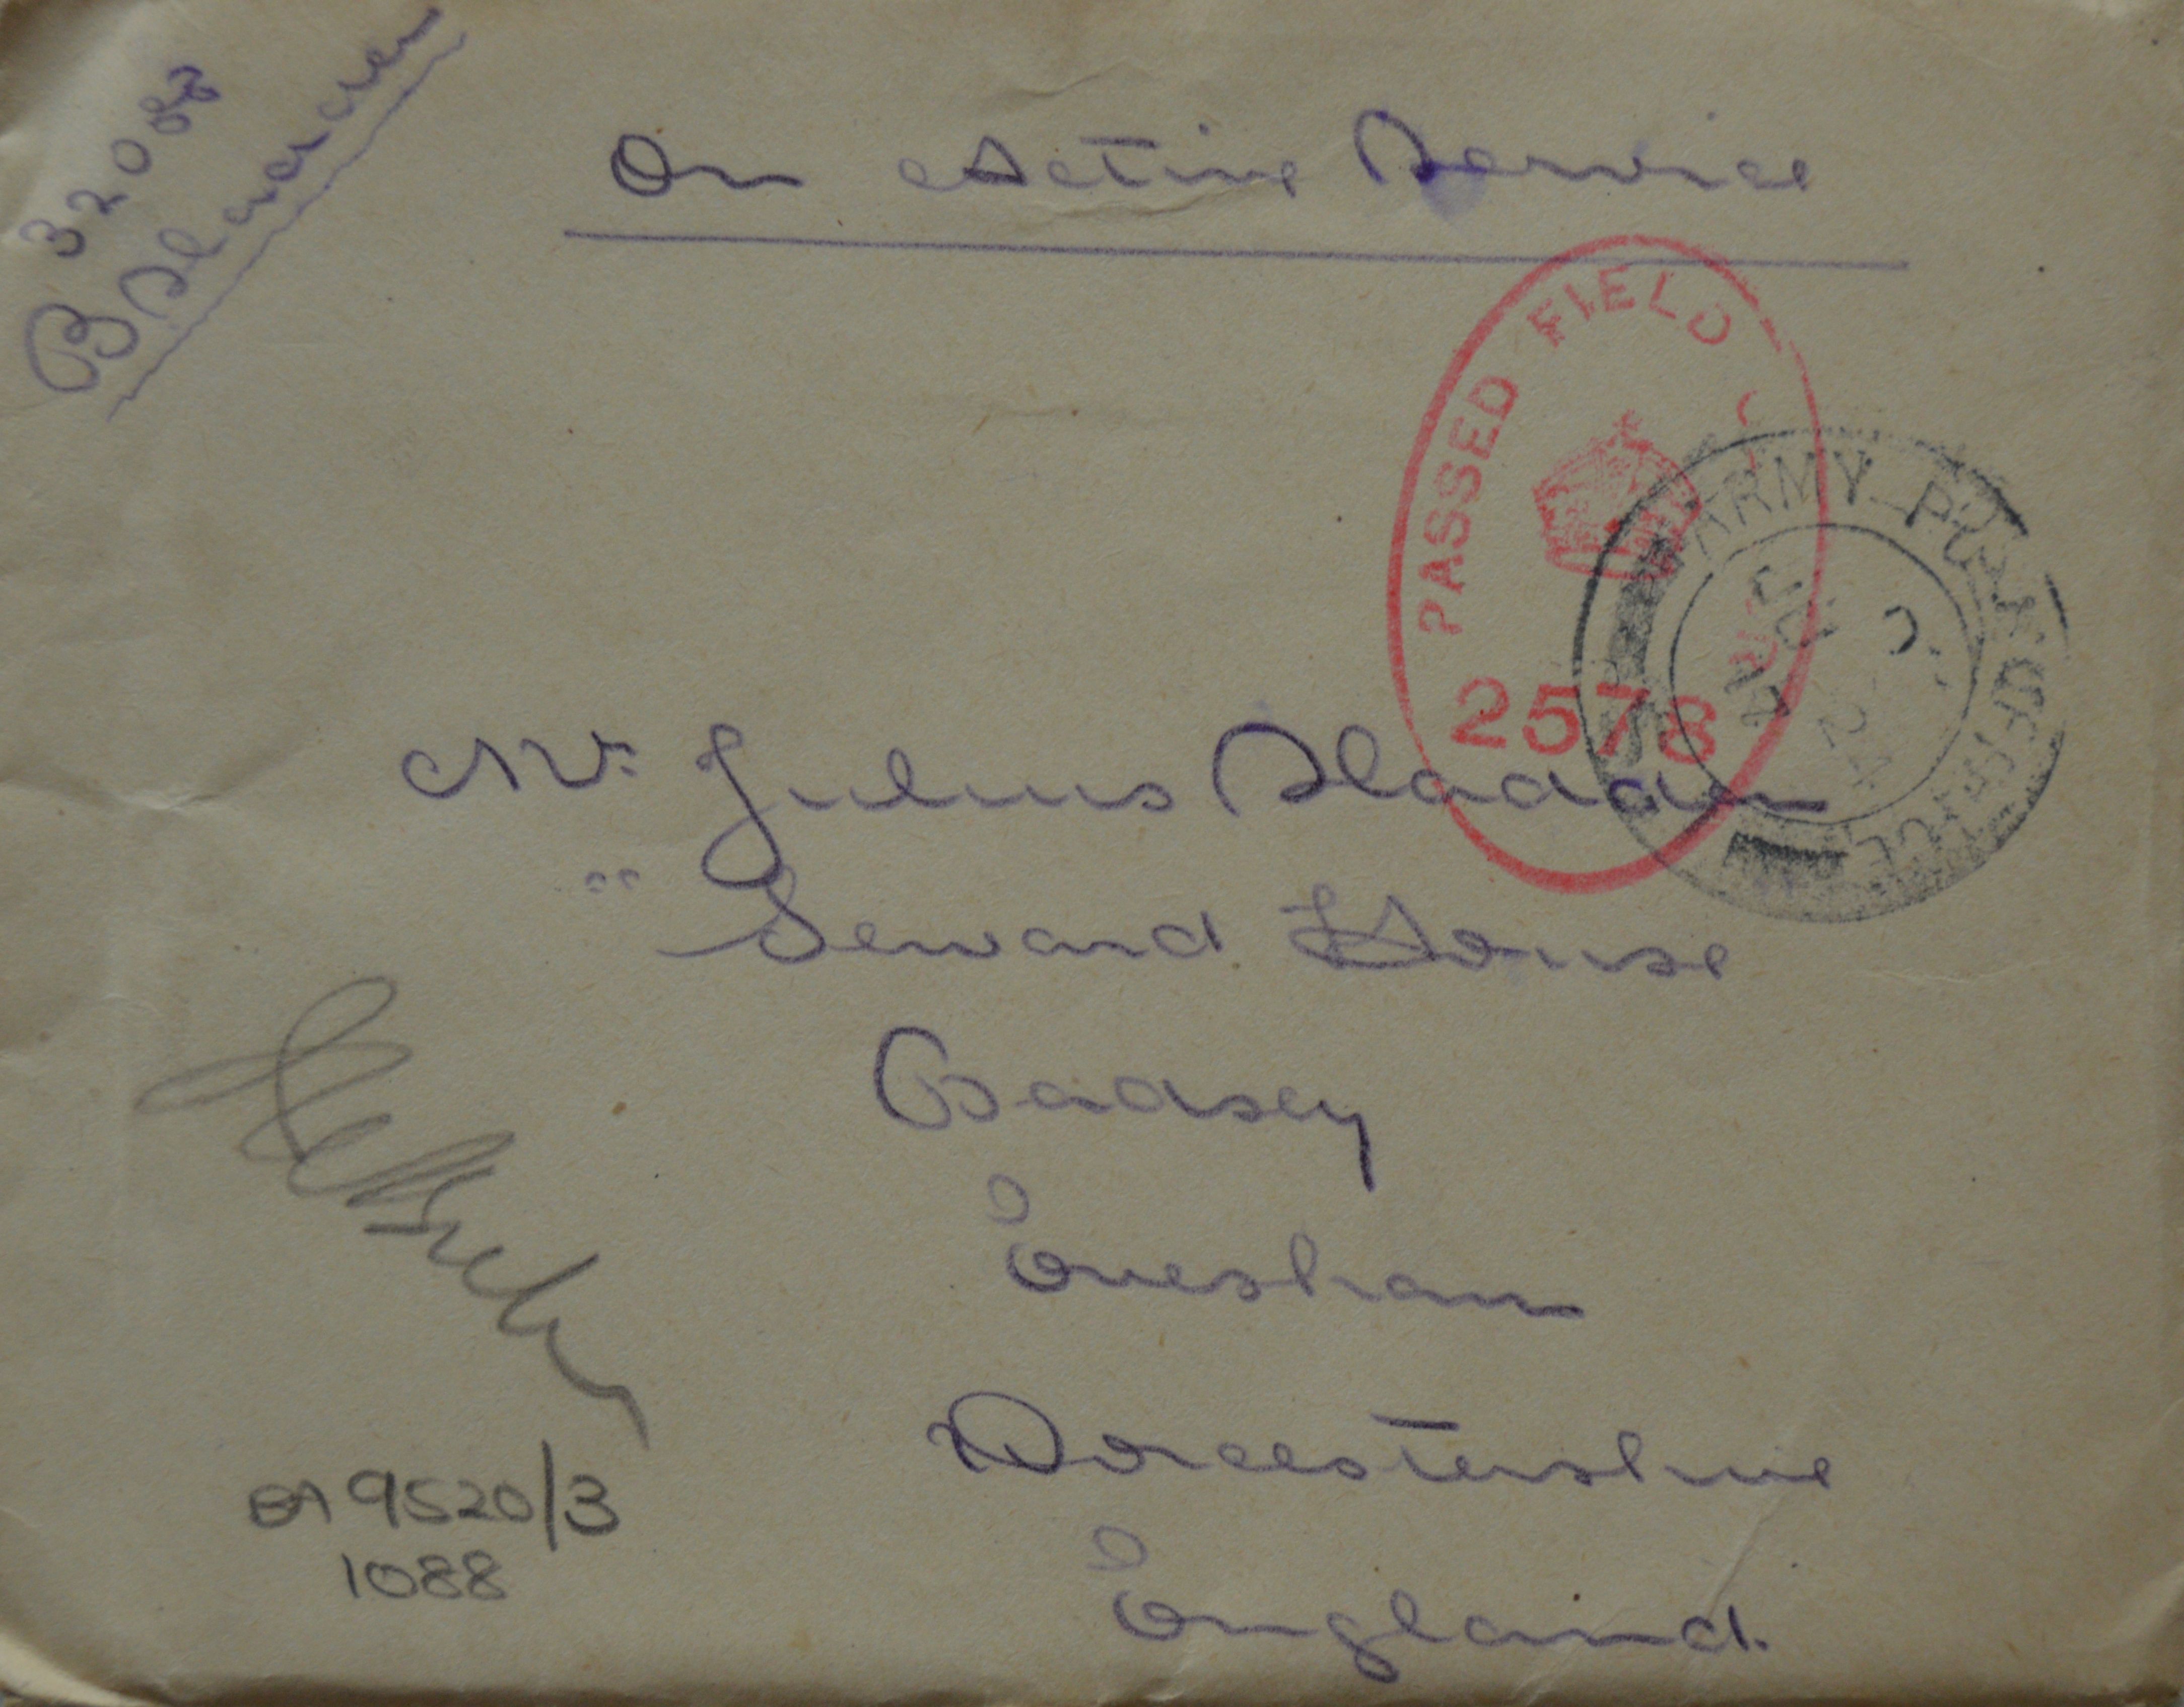 32088
B Sladden
On Active Service
PASSED FIELD
2578
ARMY POST OFFICE
Mr. Julius Sladden
Seward House
Badsey
Evesham
Worcestershire
England.
BA 9520/3
1088